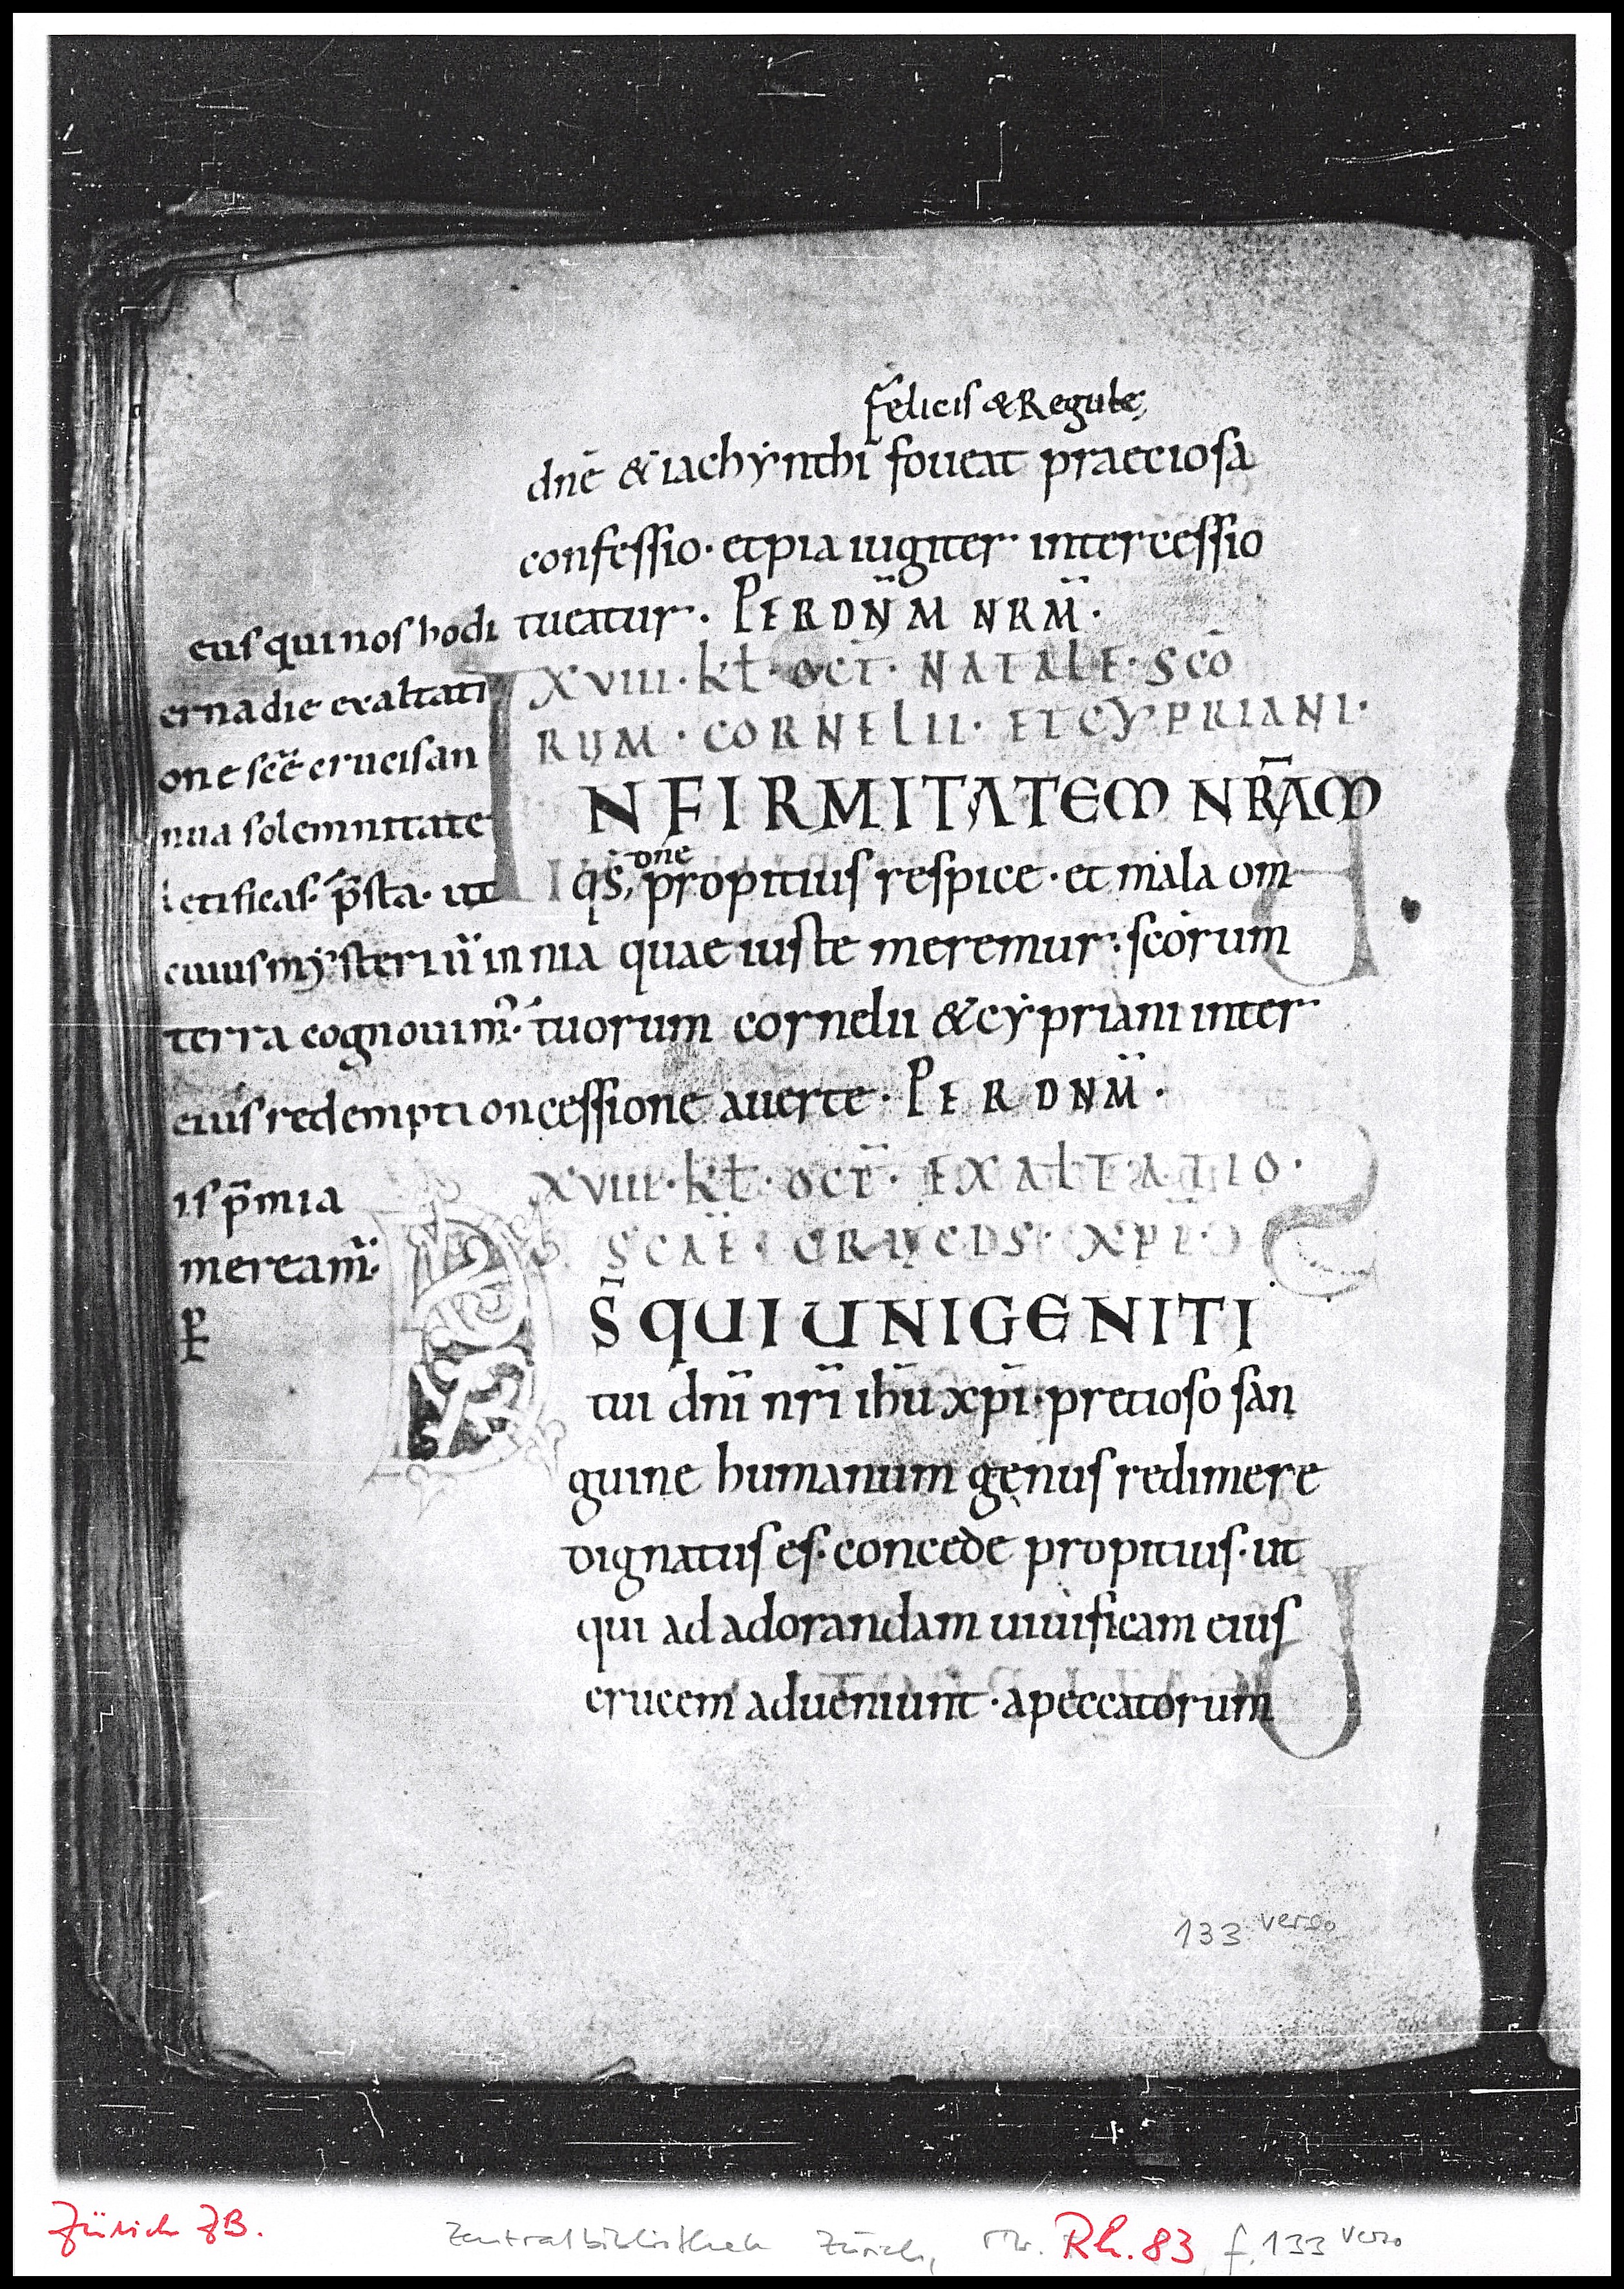 Felicis & Regule
dnē & iachẏnthi foueat praeciosa
confessio· et pia iugiter intercessio
tueatur· PER DN̄M NRM̄·
XVIII· kƚ· OCT· NATALE· SCŌ
RUM· CORNELII· ET CYPRIANI·
INFIRMITATEM NR̄AM
qs, propitius respice· et mala om
one
nia quae iuste meremur: scōrum
tuorum cornelii & cẏpriani inter
cessione auerte· PER DNM̄·
XVIII· kƚ· OCT̄· EXALTATIO·
SCAE· CRUCIS· XPI·
DS̄ QUI UNIGENITI
tui dnī nrī ihū xpī· pretioso san
guine humanum genus redimere
dignatus es· concede propitius· ut
qui ad adorandam uiuificam eius
crucem adueniunt· a peccatorum
eus qui nos hodi
erna die exaltati
one scē crucis an
nua solemnitate
letificas· p̄sta· ut
cuius mẏsteriū in
terra cognouim᷒·
eius redemption
is p̄mia
mereamur̄·
P
133 verso
Zürich ZB.
Zentralbibliothek Zürich, Ms. Rh. 83, f. 133 verso